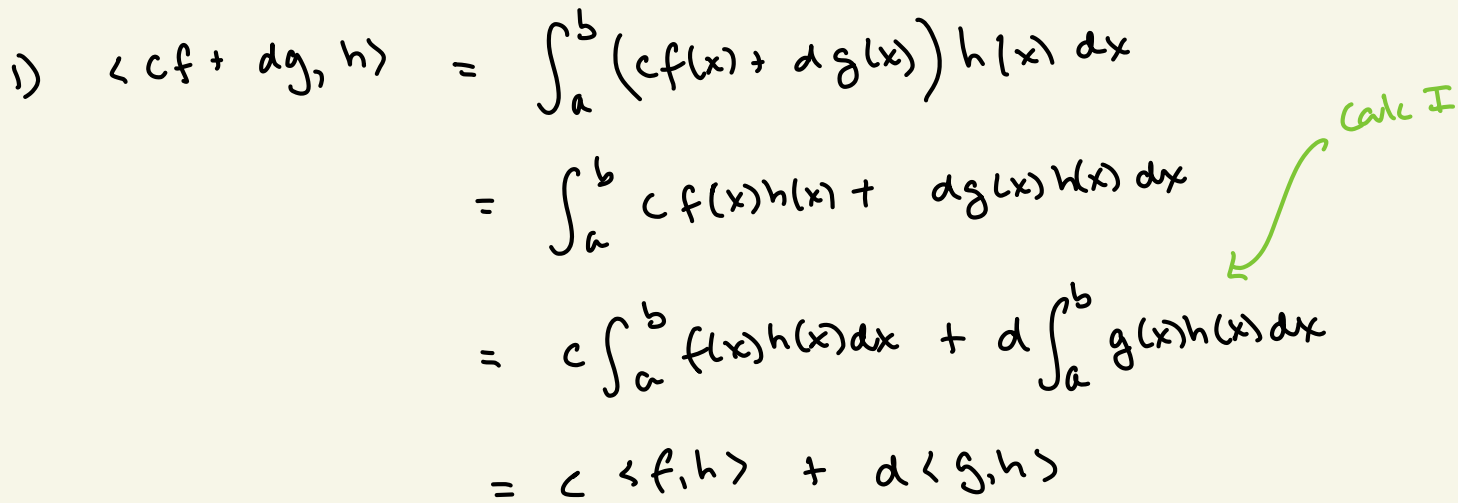 1) <cf + dg, h> = ∫_a^b (cf(x) + dg(x)) h(x) dx
Calc I
= ∫_a^b cf(x)h(x) + dg(x)h(x) dx
= c∫_a^b f(x)h(x)dx + d∫_a^b g(x)h(x)dx
= c <f,h> + d<g,h>